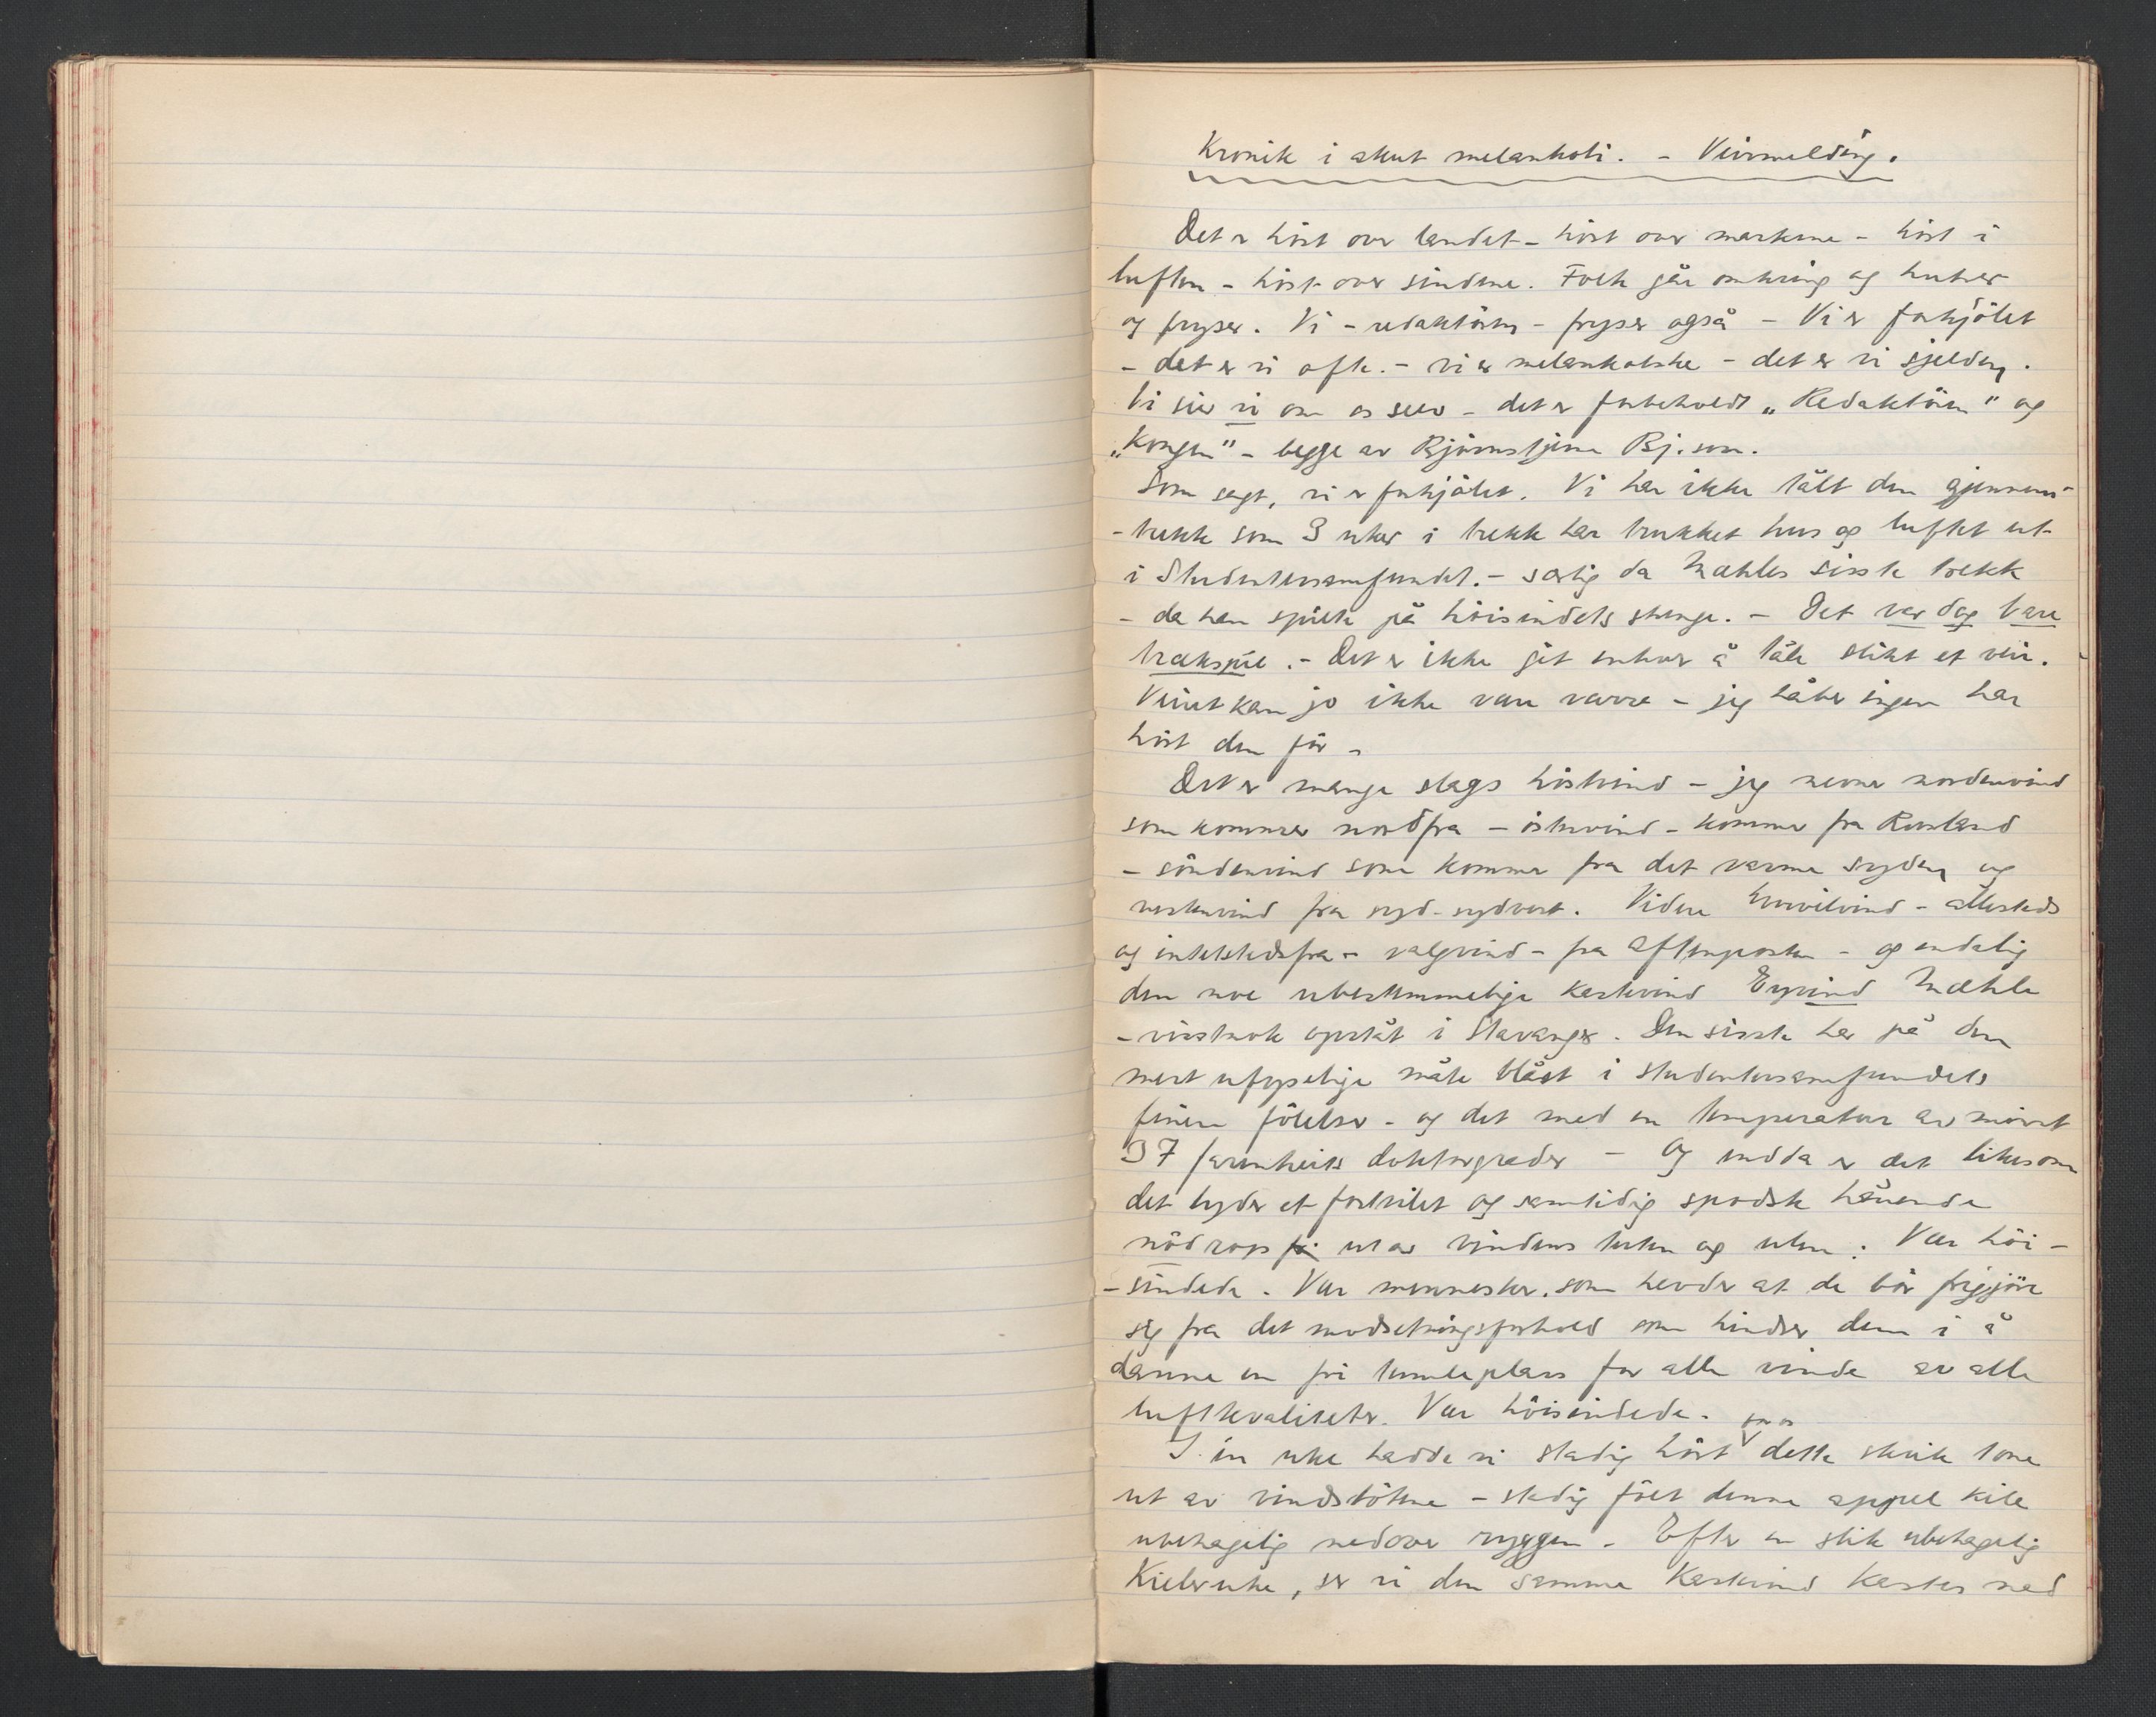 Kronik i akut melankoli. - Veirmelding.
Det er höst over landet - höst over markene - höst i
luften - höst over sindene. Folk går omkring og hutrer
og fryser. Vi - redaktören - fryser også - Vi er forkjölet
- det er vi ofte. - vi er melankolske - det er vi sjelden.
Vi sier vi om os selv - det er forbeholdt "Redaktören" og
"Kongen" - begge av Björnstjerne Bj.son.
Som sagt, vi er forkjölet. Vi har ikke tålt den gjennem-
-trekk som 3 uker i trekk har trukket hus og luftet ut
i Studentersamfundet. - særlig da Mæhles sisste trekk
- da han spilte på höisindets strenge. - Det var dog bare
trækspil. - Det er ikke git enhver å tåle slikt et veir.
Veiret kan jo ikke være værre - jeg håber ingen har
hört den för -
Det er mange slags höstvind - jeg nevner nordenvind
som kommer nordfra - östenvind - kommer fra Rusland
- söndenvind som kommer fra det varme syden og
vestenvind fra syd-sydvest. Videre hvirvelvind - allesteds
og intetstedsfra - valgvind - fra Aftenposten - og endelig
den noe ubestemmelige kastevind Eyvind Mæhle
- visstnok opstått i Stavanger. Den sisste har på den
mest ufyselige måte blåst i studentersamfundets
finere fölelser - og det med en temperatur av minst
37 farenheits doktorgrader - Og endda er det likesom
det lyder et fortvilet og samtidig spodsk hånende
nödrop ut av vindens tuten og ulen: Vær höi-
-sindede. Vær mennesker, som hevder at de bör frigjöre
sig fra det modsetningsforhold som hindrer dem i å
danne en fri tumleplass for alle vinde av alle
luftkvaliteter. Vær höisindede.
I en uke hadde vi stadig hört for os dette skrik tone
ut av vindstötene - stadig fölt denne appel kile
ubehagelig nedover ryggen. Efter en slik ubehagelig
Kieleruke, ser vi den samme Kastevind kastes ned